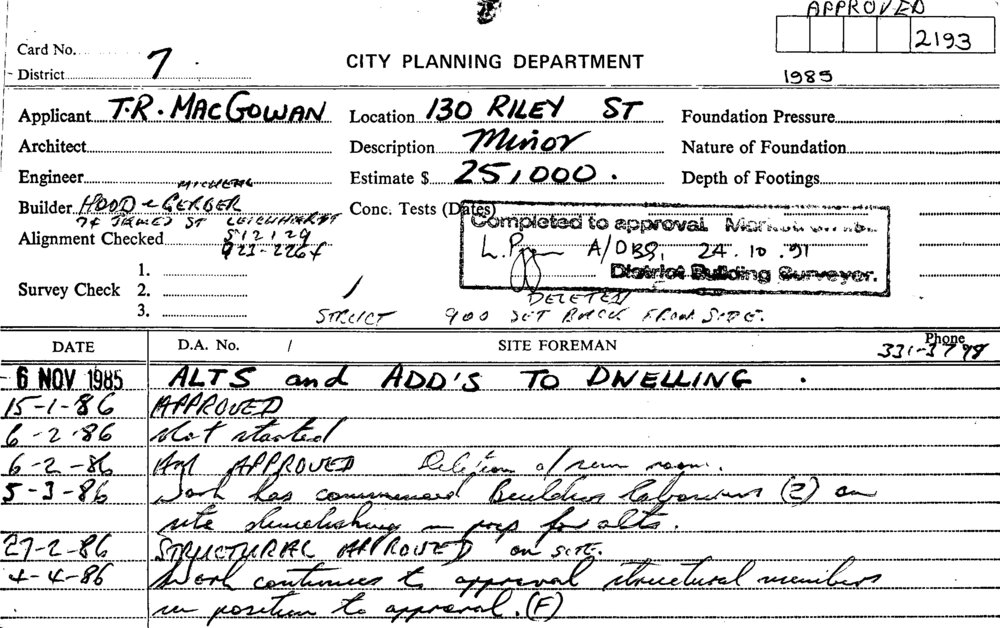 APPROVED
2193
1985
Card No.
District 7
CITY PLANNING DEPARTMENT
Applicant T.R. MACGOWAN
Location 130 RILEY ST
Foundation Pressure
Architect
Description Minor
Nature of Foundation
Engineer
Estimate $ 25,000.
Depth of Footings
MICHEAL
Builder HOOD & GERBER
74 JAMES ST LEICHHARDT
Conc. Tests (Dates)
Alignment Checked 512129
Completed to approval.
L. A/DBS, 24.10.91
District Building Surveyor.
Survey Check 1.
2.
3.
DELETED
STRUCT 900 SET BACK FROM SITE.
DATE D.A. No. / SITE FOREMAN Phone
331-3798
- 6 NOV 1985 ALTS and ADD'S TO DWELLING.
15-1-86 APPROVED
6-2-86 Not started
6-2-86 APPROVED Deletion of room.
5-3-86 Work has commenced Building labourers (2) on
site demolishing in prep for alts.
27-2-86 STRUCTURAL APPROVED on SITE.
4-4-86 Work continues to approval structural members
in position to approval. (F)